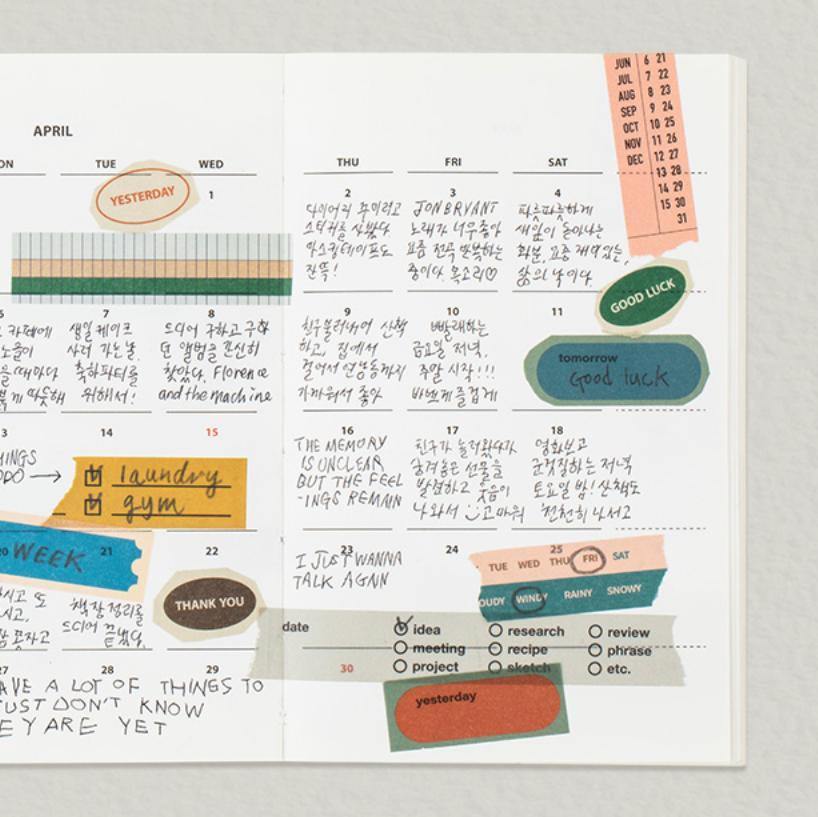 APRIL
TUE
WED
THU
FRI
SAT
YESTERDAY
1
2
다이어리 꾸미려고
스티커를 샀다
마스킹테이프도
잔뜩!
3
JON BRYANT
노래가 너무좋아
요즘 전곡 반복하는
중이다. 목소리♡
4
파릇파릇하게
새잎이 돋아나는
화분, 요즘 재미있는,
삶의 낙이다.
JUN 6 21
JUL 7 22
AUG 8 23
SEP 9 24
OCT 10 25
NOV 11 26
DEC 12 27
13 28
14 29
15 30
31
GOOD LUCK
카페에
7
생일 케이크
사러 가는 날.
축하파티를
위해서!
8
드디어 구하고 구하
던 앨범을
찾았다. Florence
and the machine
9
친구 불러내어 산책
하고, 집에서
걸어서 연남동까지
가까워서 좋아
10
빨래하는
금요일 저녁.
주말 시작!!!
바쁘게 즐겁게
11
tomorrow
Good luck
14
15
laundry
gym
16
THE MEMORY
IS UNCLEAR
BUT THE FEEL
-INGS REMAIN
17
친구가 놀러왔다가
숨겨놓은 선물을
발견하고 웃음이
나와서 고마워
18
영화보고
군것질하는 저녁
토요일 밤! 산책도
천천히 나서고
20
WEEK
21
책장 정리를
드디어 끝냈다.
22
THANK YOU
23
I JUST WANNA
TALK AGAIN
24
25
TUE WED THU FRI SAT
OUDY WINDY RAINY SNOWY
date
idea
research
review
meeting
recipe
phrase
project
sketch
etc.
27
28
29
30
AVE A LOT OF THINGS TO
UST DON'T KNOW
EY ARE YET
yesterday